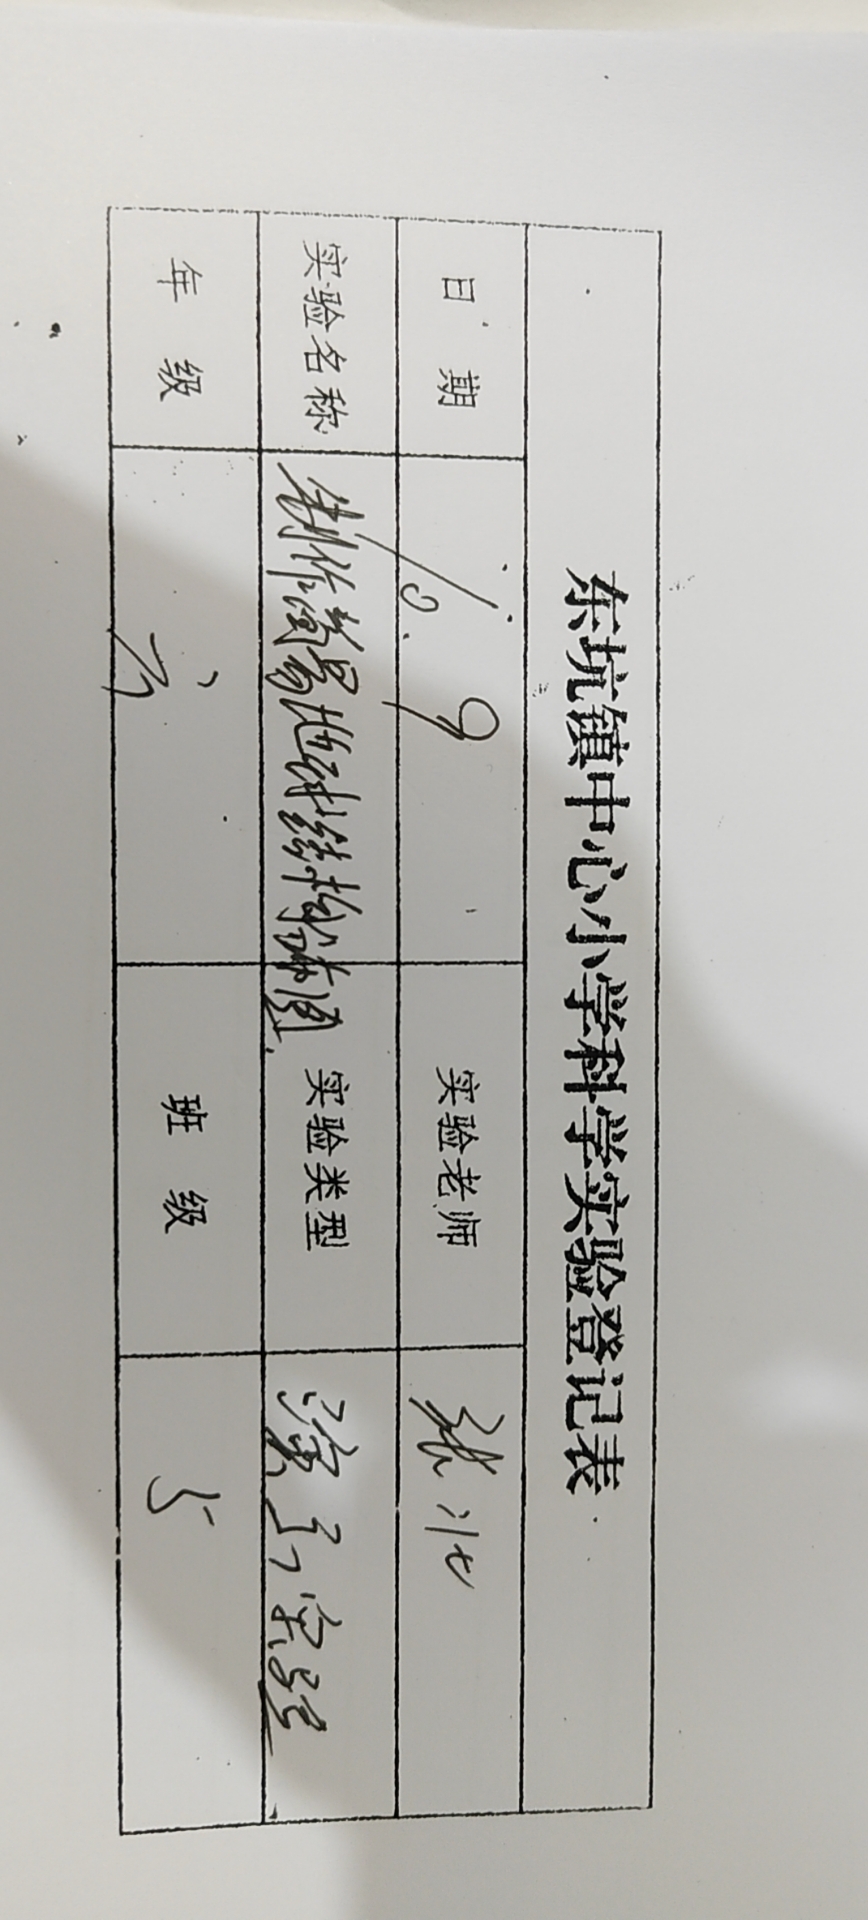 东坑镇中心小学科学实验登记表
日期 10.9 实验老师 张
实验名称 制作简易地球结构模型 实验类型 演示实验
年级 六 班级 5